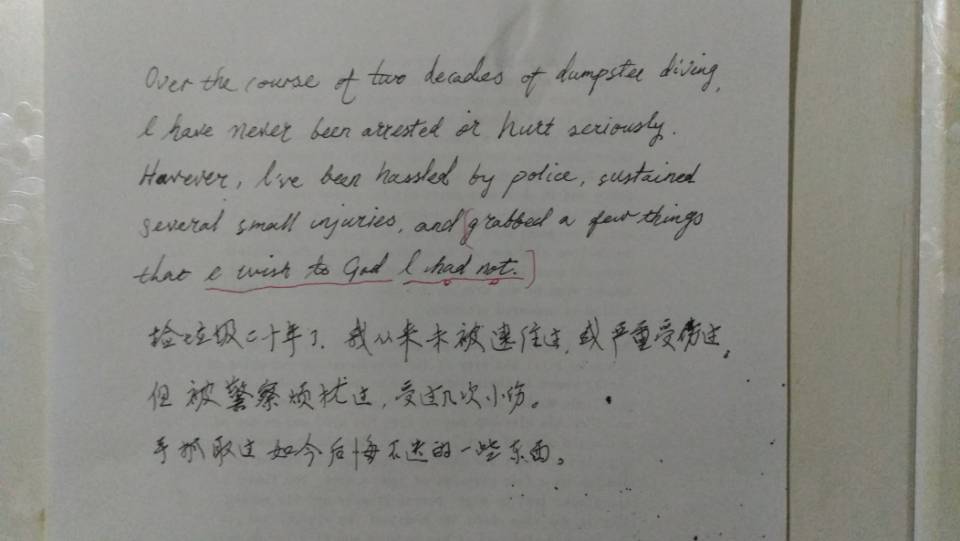 Over the course of two decades of dumpster diving,
I have never been arrested or hurt seriously.
However, I've been hassled by police, sustained
several small injuries, and grabbed a few things
that I wish to God I had not.
捡垃圾二十年了，我从来未被逮住过，或严重受伤过。
但被警察烦扰过，受过几次小伤。
手抓取过如今后悔不迭的一些东西。